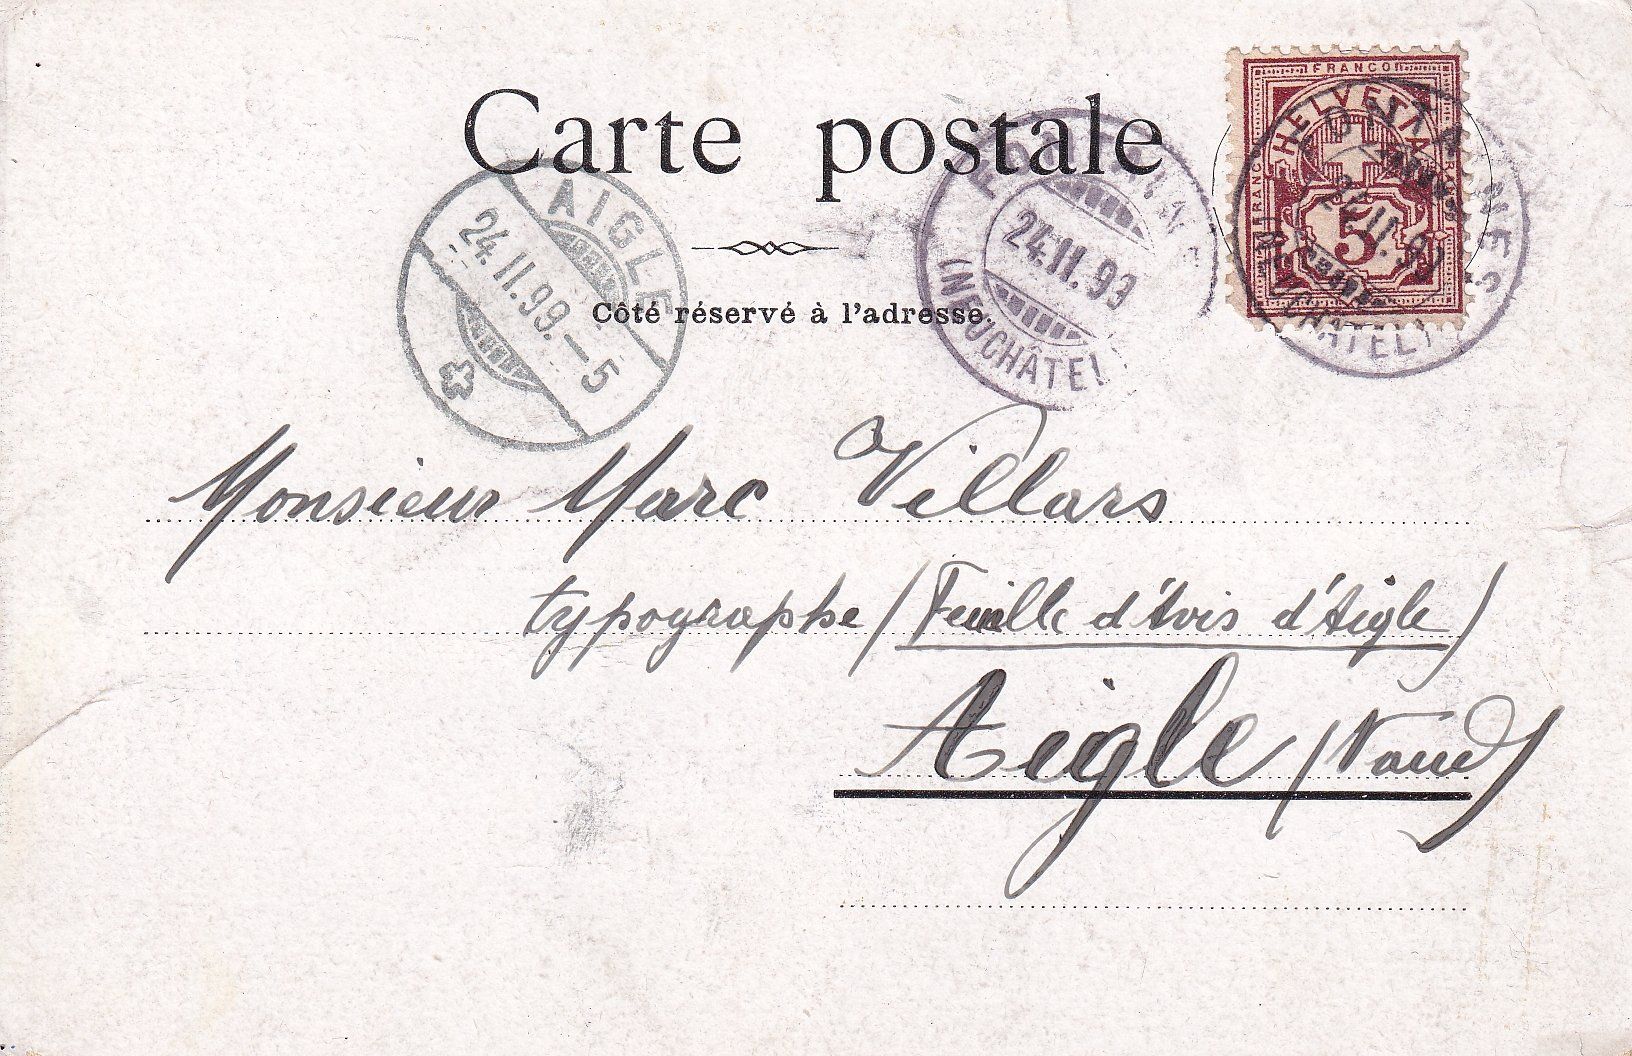 Carte postale
Côté réservé à l'adresse.
FRANCO
HELVETIA
5
AIGLE
24.II.99.–5
24.II.99
(NEUCHÂTEL)
Monsieur Marc Villars
typographe (Feuille d'Avis d'Aigle)
Aigle (Vaud)